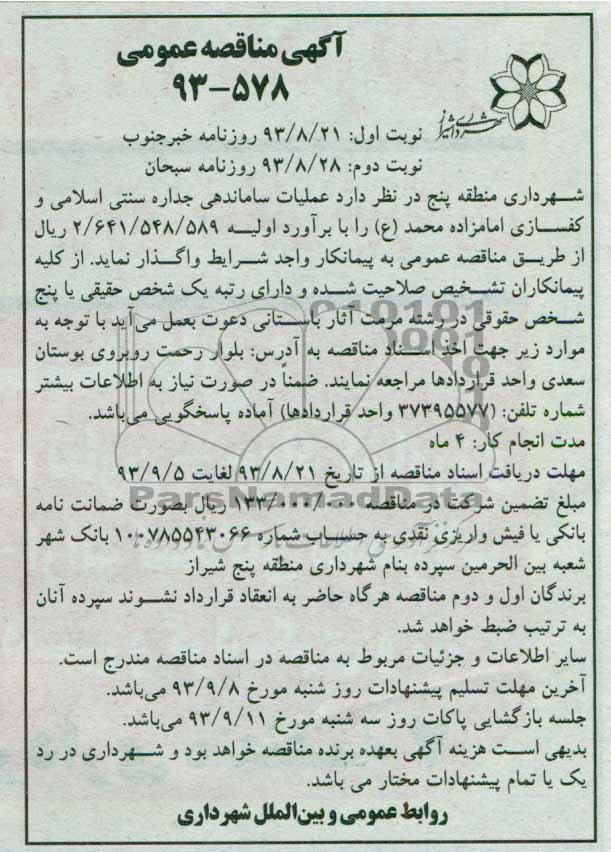 آگهی مناقصه عمومی
۹۳-۵۷۸
شهرداری شیراز
نوبت اول: ۹۳/۸/۲۱ روزنامه خبرجنوب
نوبت دوم: ۹۳/۸/۲۸ روزنامه سبحان
شهرداری منطقه پنج در نظر دارد عملیات ساماندهی جداره سنتی اسلامی و
کفسازی امامزاده محمد (ع) را با برآورد اولیه ۲/۶۴۱/۵۴۸/۵۸۹ ریال
از طریق مناقصه عمومی به پیمانکار واجد شرایط واگذار نماید. از کلیه
پیمانکاران تشخیص صلاحیت شده و دارای رتبه یک شخص حقیقی یا پنج
شخص حقوقی در رشته مرمت آثار باستانی دعوت بعمل می‌آید با توجه به
موارد زیر جهت اخذ اسناد مناقصه به آدرس: بلوار رحمت روبروی بوستان
سعدی واحد قراردادها مراجعه نمایند. ضمناً در صورت نیاز به اطلاعات بیشتر
شماره تلفن: (۳۷۳۹۵۵۷۷ واحد قراردادها) آماده پاسخگویی می‌باشد.
مدت انجام کار: ۴ ماه
مهلت دریافت اسناد مناقصه از تاریخ ۹۳/۸/۲۱ لغایت ۹۳/۹/۵
ParsNamadData
مبلغ تضمین شرکت در مناقصه ۱۳۳/۰۰۰/۰۰۰ ریال بصورت ضمانت نامه
بانکی یا فیش واریزی نقدی به حساب شماره ۱۰۰۷۸۵۵۴۳۰۶۶ بانک شهر
شعبه بین الحرمین سپرده بنام شهرداری منطقه پنج شیراز
برندگان اول و دوم مناقصه هرگاه حاضر به انعقاد قرارداد نشوند سپرده آنان
به ترتیب ضبط خواهد شد.
سایر اطلاعات و جزئیات مربوط به مناقصه در اسناد مناقصه مندرج است.
آخرین مهلت تسلیم پیشنهادات روز شنبه مورخ ۹۳/۹/۸ می‌باشد.
جلسه بازگشایی پاکات روز سه شنبه مورخ ۹۳/۹/۱۱ می‌باشد.
بدیهی است هزینه آگهی بعهده برنده مناقصه خواهد بود و شهرداری در رد
یک یا تمام پیشنهادات مختار می باشد.
روابط عمومی و بین‌الملل شهرداری